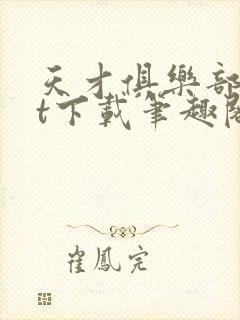 天才俱樂部
t下載筆趣閣
崔鳳完